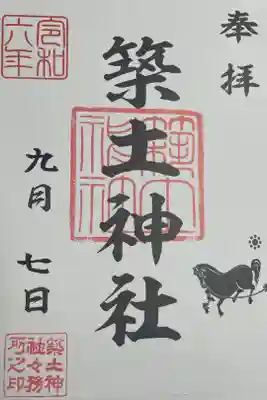 奉拝
築土神社
築土神社
令和
六年
九月七日
築土神
社々務
所之印